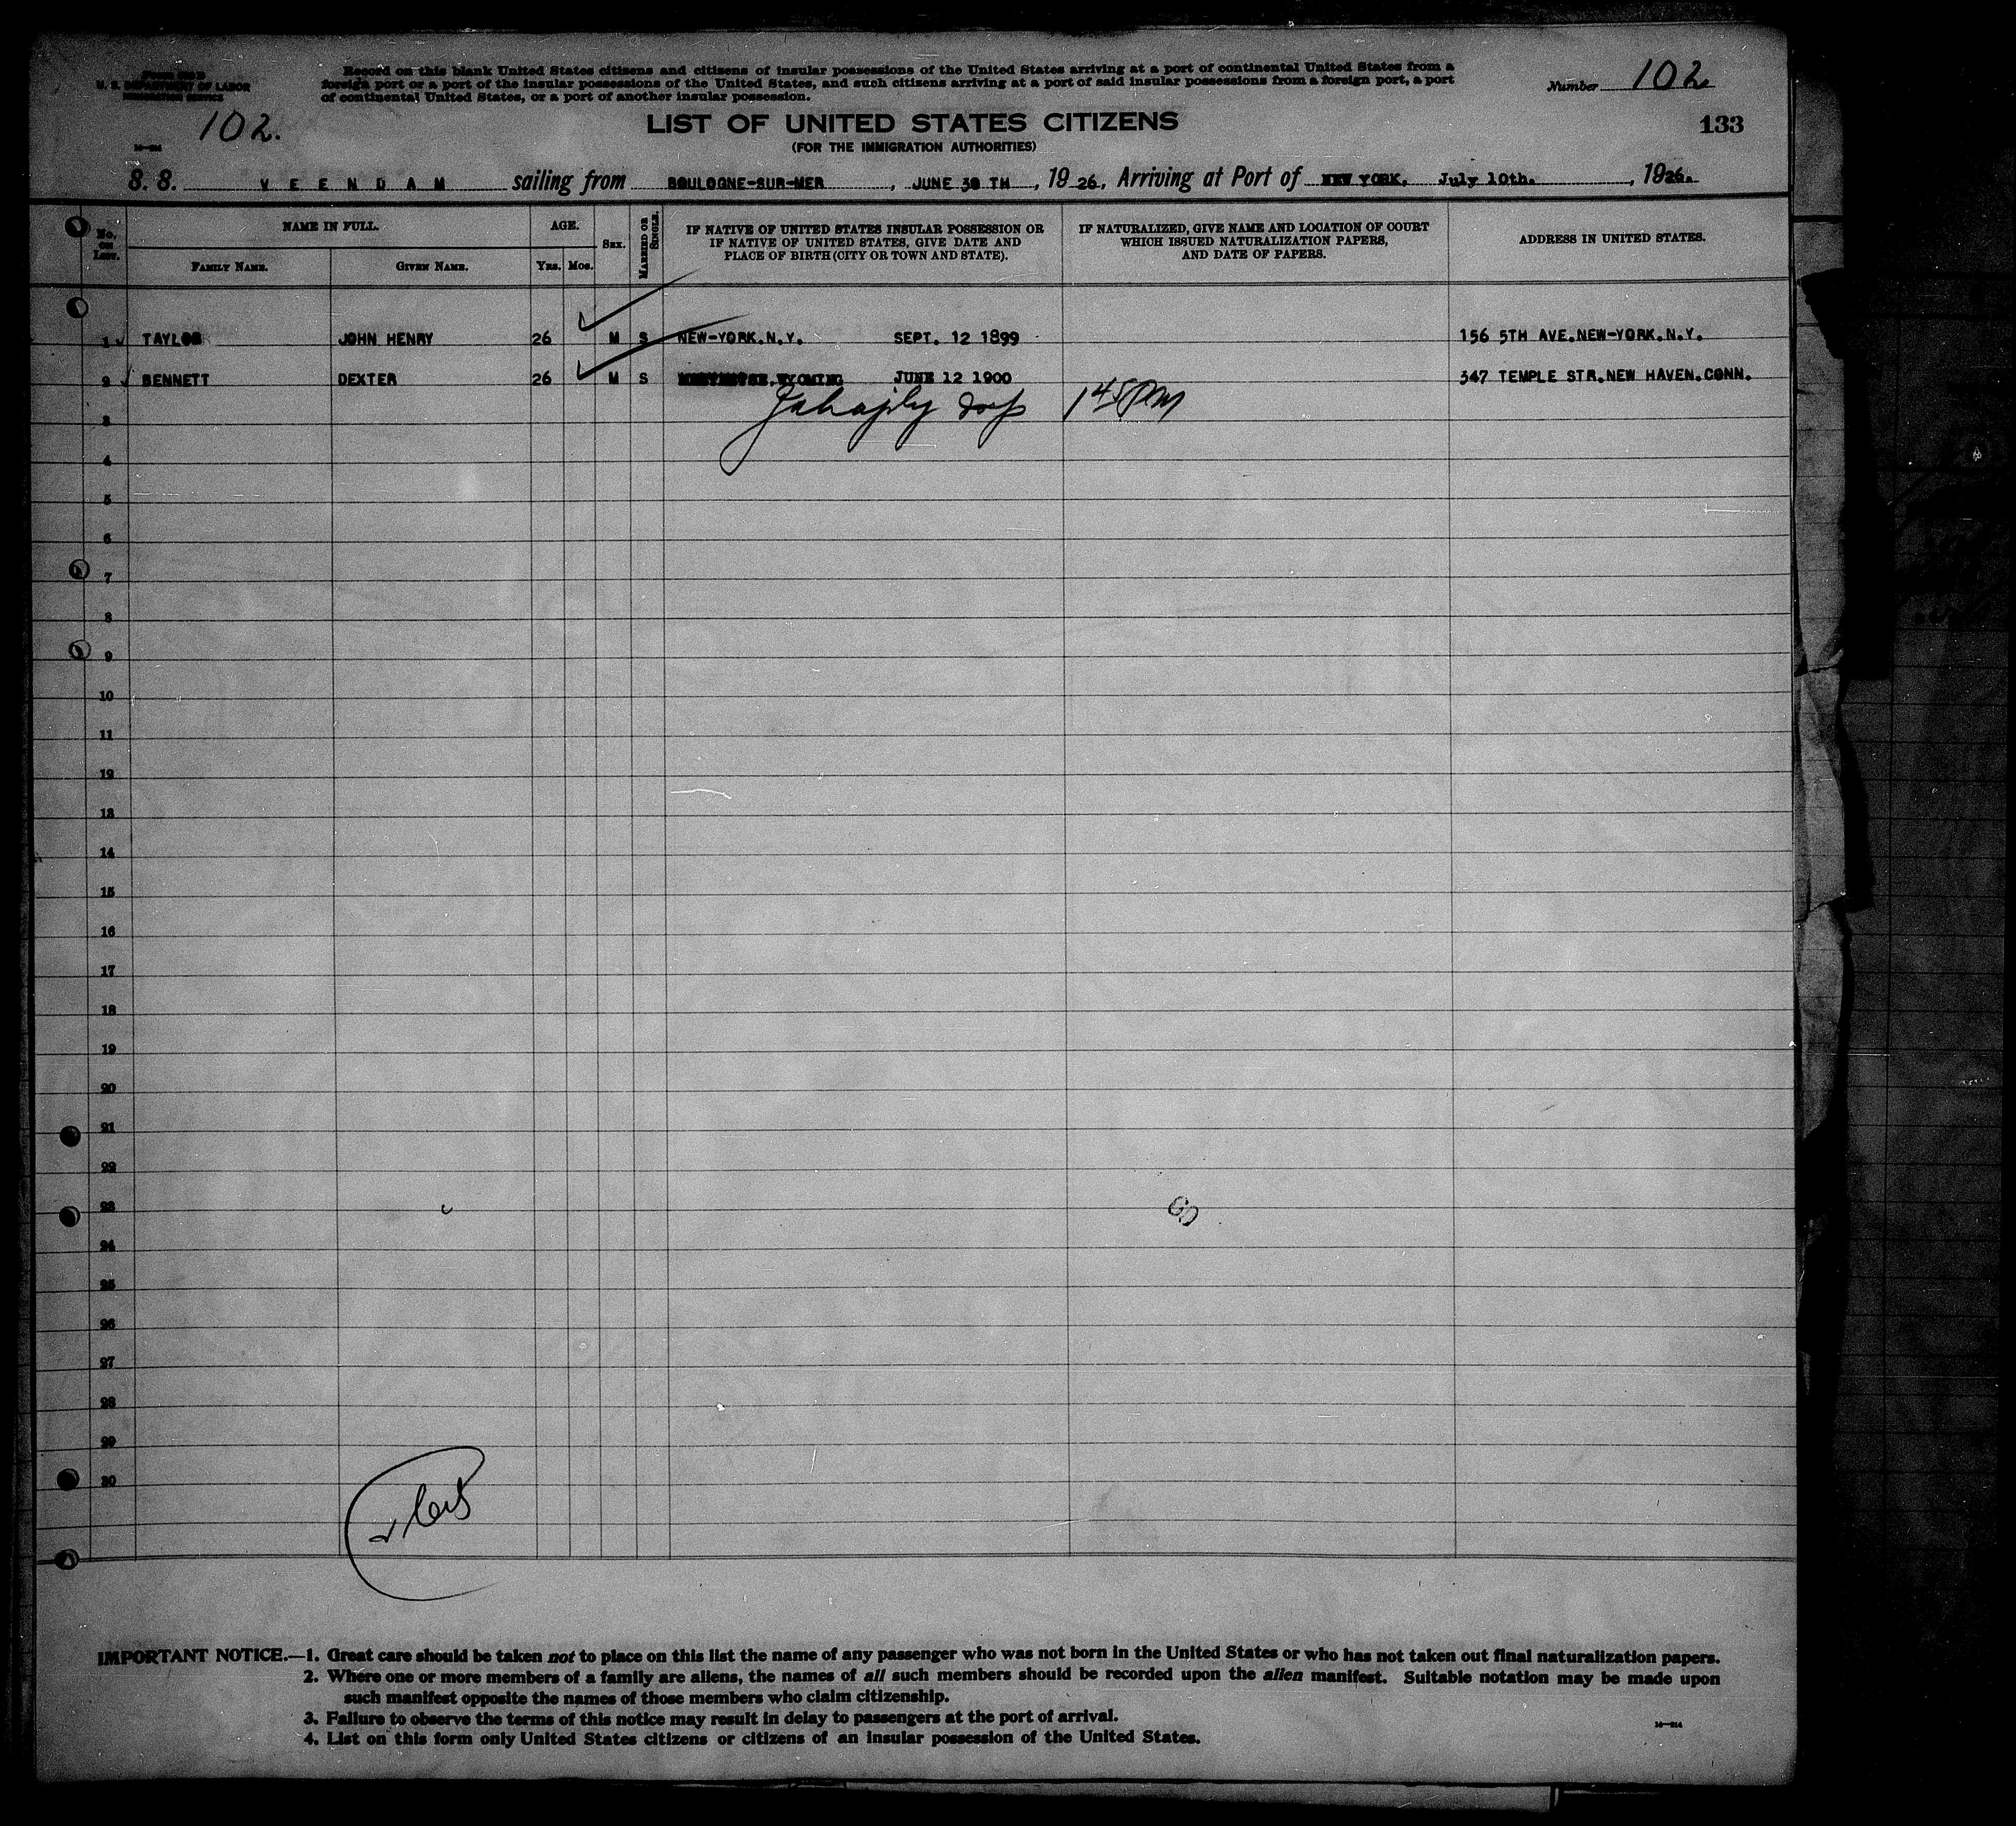 U. S. DEPARTMENT OF LABOR
IMMIGRATION SERVICE
Record on this blank United States citizens and citizens of insular possessions of the United States arriving at a port of continental United States from a
foreign port or a port of the insular possessions of the United States, and such citizens arriving at a port of said insular possessions from a foreign port, a port
of continental United States, or a port of another insular possession.
Number 102
102.
LIST OF UNITED STATES CITIZENS
133
(FOR THE IMMIGRATION AUTHORITIES)
S. S. VEENDAM sailing from BOULOGNE-SUR-MER, JUNE 30 TH, 1926, Arriving at Port of NEW YORK, July 10th., 1926.
No. on List.
NAME IN FULL.
Family Name.
Given Name.
AGE.
Yrs. Mos.
Sex.
Married or Single.
IF NATIVE OF UNITED STATES INSULAR POSSESSION OR
IF NATIVE OF UNITED STATES, GIVE DATE AND
PLACE OF BIRTH (CITY OR TOWN AND STATE).
IF NATURALIZED, GIVE NAME AND LOCATION OF COURT
WHICH ISSUED NATURALIZATION PAPERS,
AND DATE OF PAPERS.
ADDRESS IN UNITED STATES.
1 TAYLOR JOHN HENRY 26 M S NEW-YORK.N.Y. SEPT. 12 1899 156 5TH AVE.NEW-YORK.N.Y.
2 BENNETT DEXTER 26 M S WYOMING JUNE 12 1900 347 TEMPLE STR.NEW HAVEN.CONN.
1 45 PM
3
4
5
6
7
8
9
10
11
12
13
14
15
16
17
18
19
20
21
22
23
24
25
26
27
28
29
30
IMPORTANT NOTICE.—1. Great care should be taken not to place on this list the name of any passenger who was not born in the United States or who has not taken out final naturalization papers.
2. Where one or more members of a family are aliens, the names of all such members should be recorded upon the alien manifest. Suitable notation may be made upon
such manifest opposite the names of those members who claim citizenship.
3. Failure to observe the terms of this notice may result in delay to passengers at the port of arrival.
4. List on this form only United States citizens or citizens of an insular possession of the United States.